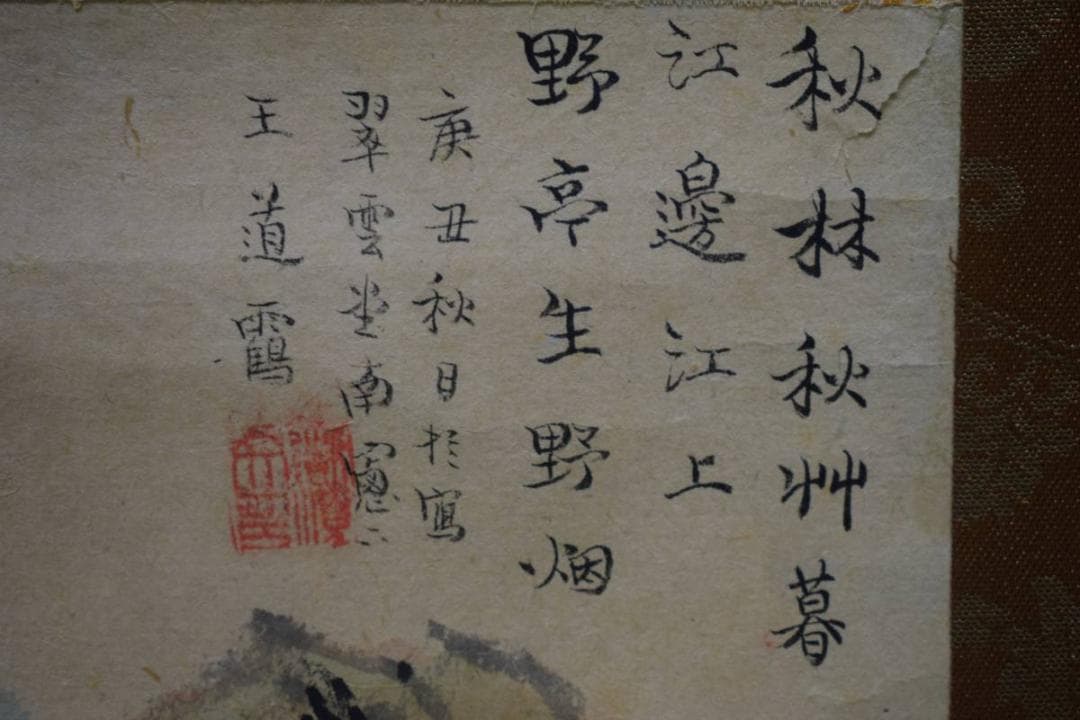 秋林秋艸暮
江邊江上
野亭生野烟
庚丑秋日於寫
翠雲堂南窻二
王道霱